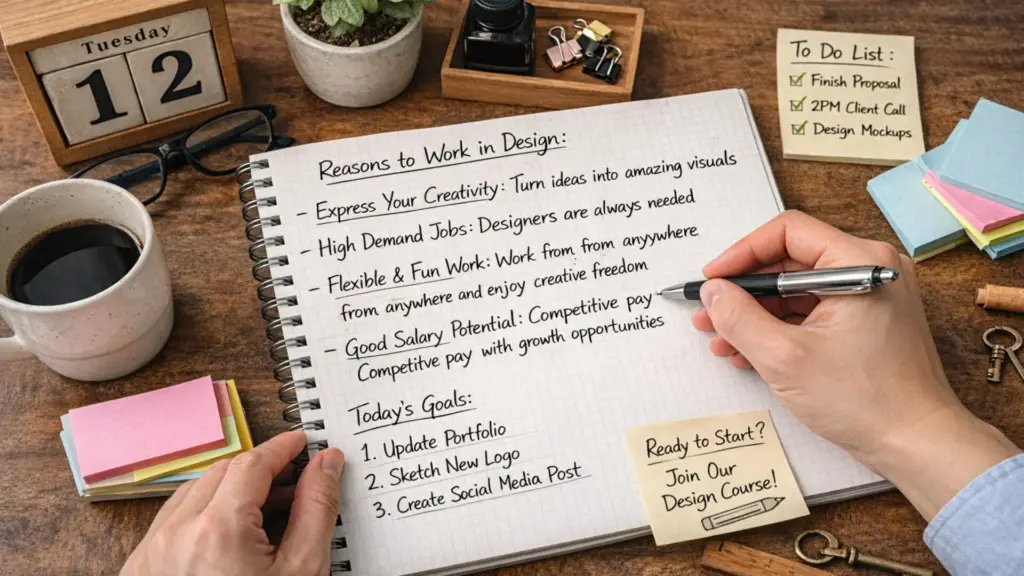 Tuesday
12
To Do List :
Finish Proposal
2PM Client Call
Design Mockups
Reasons to Work in Design:
- Express Your Creativity: Turn ideas into amazing visuals
- High Demand Jobs: Designers are always needed
- Flexible & Fun Work: Work from from anyywhere
from anywhere and enjoy creative freedom
- Good Salary Potential: Competitive pay
Competitive pay with growth opportunities
Today's Goals:
1. Update Portfolio
2. Sketch New Logo
3. Create Social Media Post
Ready to Start?
Join Our
Design Course!